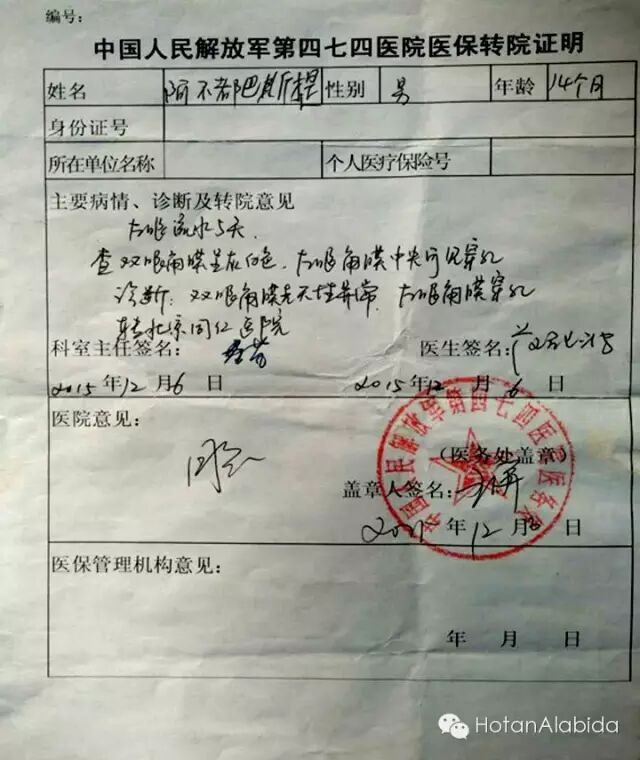 编号:
中国人民解放军第四七四医院医保转院证明
姓名 阿不都巴斯提 性别 男 年龄 14个月
身份证号
所在单位名称 个人医疗保险号
主要病情、诊断及转院意见
左眼流水5天.
查双眼角膜呈灰白色,左眼角膜中央可见穿孔
诊断:双眼角膜先天性异常,左眼角膜穿孔
转北京同仁医院
科室主任签名: 医生签名:
2015年12月6日 2015年12月6日
医院意见: (医务处盖章)
同意
盖章人签名:
年12月日
中国人民解放军第四七四医院医务处
医保管理机构意见:
年 月 日
HotanAlabida